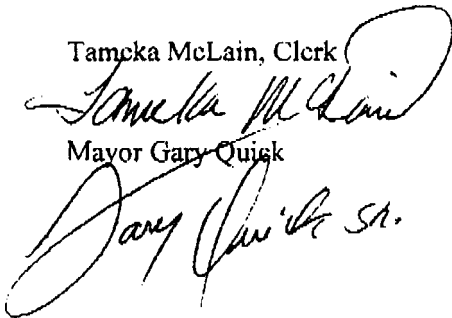 Tameka McLain, Clerk
Tameka McClain
Mayor Gary Quick
Gary Quick Sr.